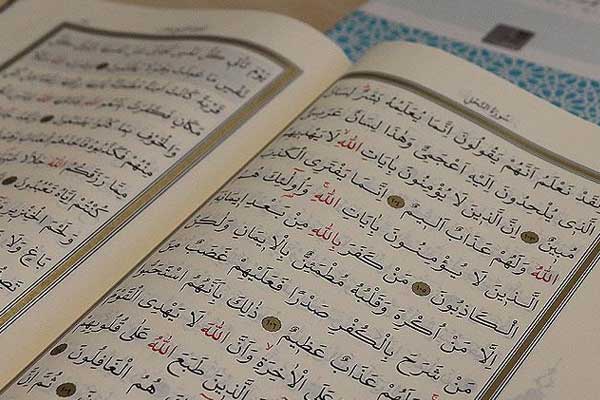 سُورَةُ النَّحْلِ
لَقَدْ نَعْلَمُ اَنَّهُمْ يَقُولُونَ اِنَّمَا يُعَلِّمُهُ بَشَرٌ لِسَانُ
الَّذِي يُلْحِدُونَ اِلَيْهِ اَعْجَمِيٌّ وَهٰذَا لِسَانٌ عَرَبِيٌّ
مُبِينٌ ١٠٣ اِنَّ الَّذِينَ لَا يُؤْمِنُونَ بِاٰيَاتِ اللّٰهِ لَا يَهْدِيهِمُ
اللّٰهُ وَلَهُمْ عَذَابٌ اَلِيمٌ ١٠٤ اِنَّمَا يَفْتَرِي الْكَذِبَ
الَّذِينَ لَا يُؤْمِنُونَ بِاٰيَاتِ اللّٰهِ وَاُولٰئِكَ هُمُ
الْكَاذِبُونَ ١٠٥ مَنْ كَفَرَ بِاللّٰهِ مِنْ بَعْدِ اِيمَانِهِ
اِلَّا مَنْ اُكْرِهَ وَقَلْبُهُ مُطْمَئِنٌّ بِالْاِيمَانِ وَلٰكِنْ
مَنْ شَرَحَ بِالْكُفْرِ صَدْرًا فَعَلَيْهِمْ غَضَبٌ مِنَ
وَلَهُمْ عَذَابٌ عَظِيمٌ ١٠٦ ذٰلِكَ بِاَنَّهُمُ اسْتَحَبُّوا
عَلَى الْاٰخِرَةِ وَاَنَّ اللّٰهَ لَا يَهْدِي الْقَوْمَ
الَّذِينَ طَبَعَ اللّٰهُ عَلٰى قُلُوبِهِمْ
هُمُ الْغَافِلُونَ
ثُمَّ اِنَّ
يَوْمَ تَأْتِي كُلُّ نَفْسٍ
نَفْسٍ مَا عَمِلَتْ
قَرْيَةً كَانَتْ اٰمِنَةً مُطْمَئِنَّةً
مَكَانٍ فَكَفَرَتْ بِاَنْعُمِ اللّٰهِ
وَالْخَوْفِ بِمَا كَانُوا
مِنْهُمْ فَكَذَّبُوهُ
مِمَّا رَزَقَكُمُ اللّٰهُ حَلَالًا
كُنْتُمْ اِيَّاهُ تَعْبُدُونَ
وَلَحْمَ الْخِنْزِيرِ
بَاغٍ وَلَا